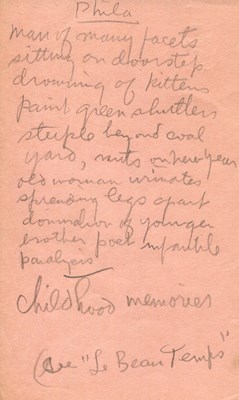 Phila
man of many facets
sitting on doorstep
drowning of kittens
paint green shutters
steeple beyond coal
yard, on new year
old woman urinates
spreading legs apart
of younger
brother poet infantile
paralysis
Childhood memories
(See "Le Beau Temps"